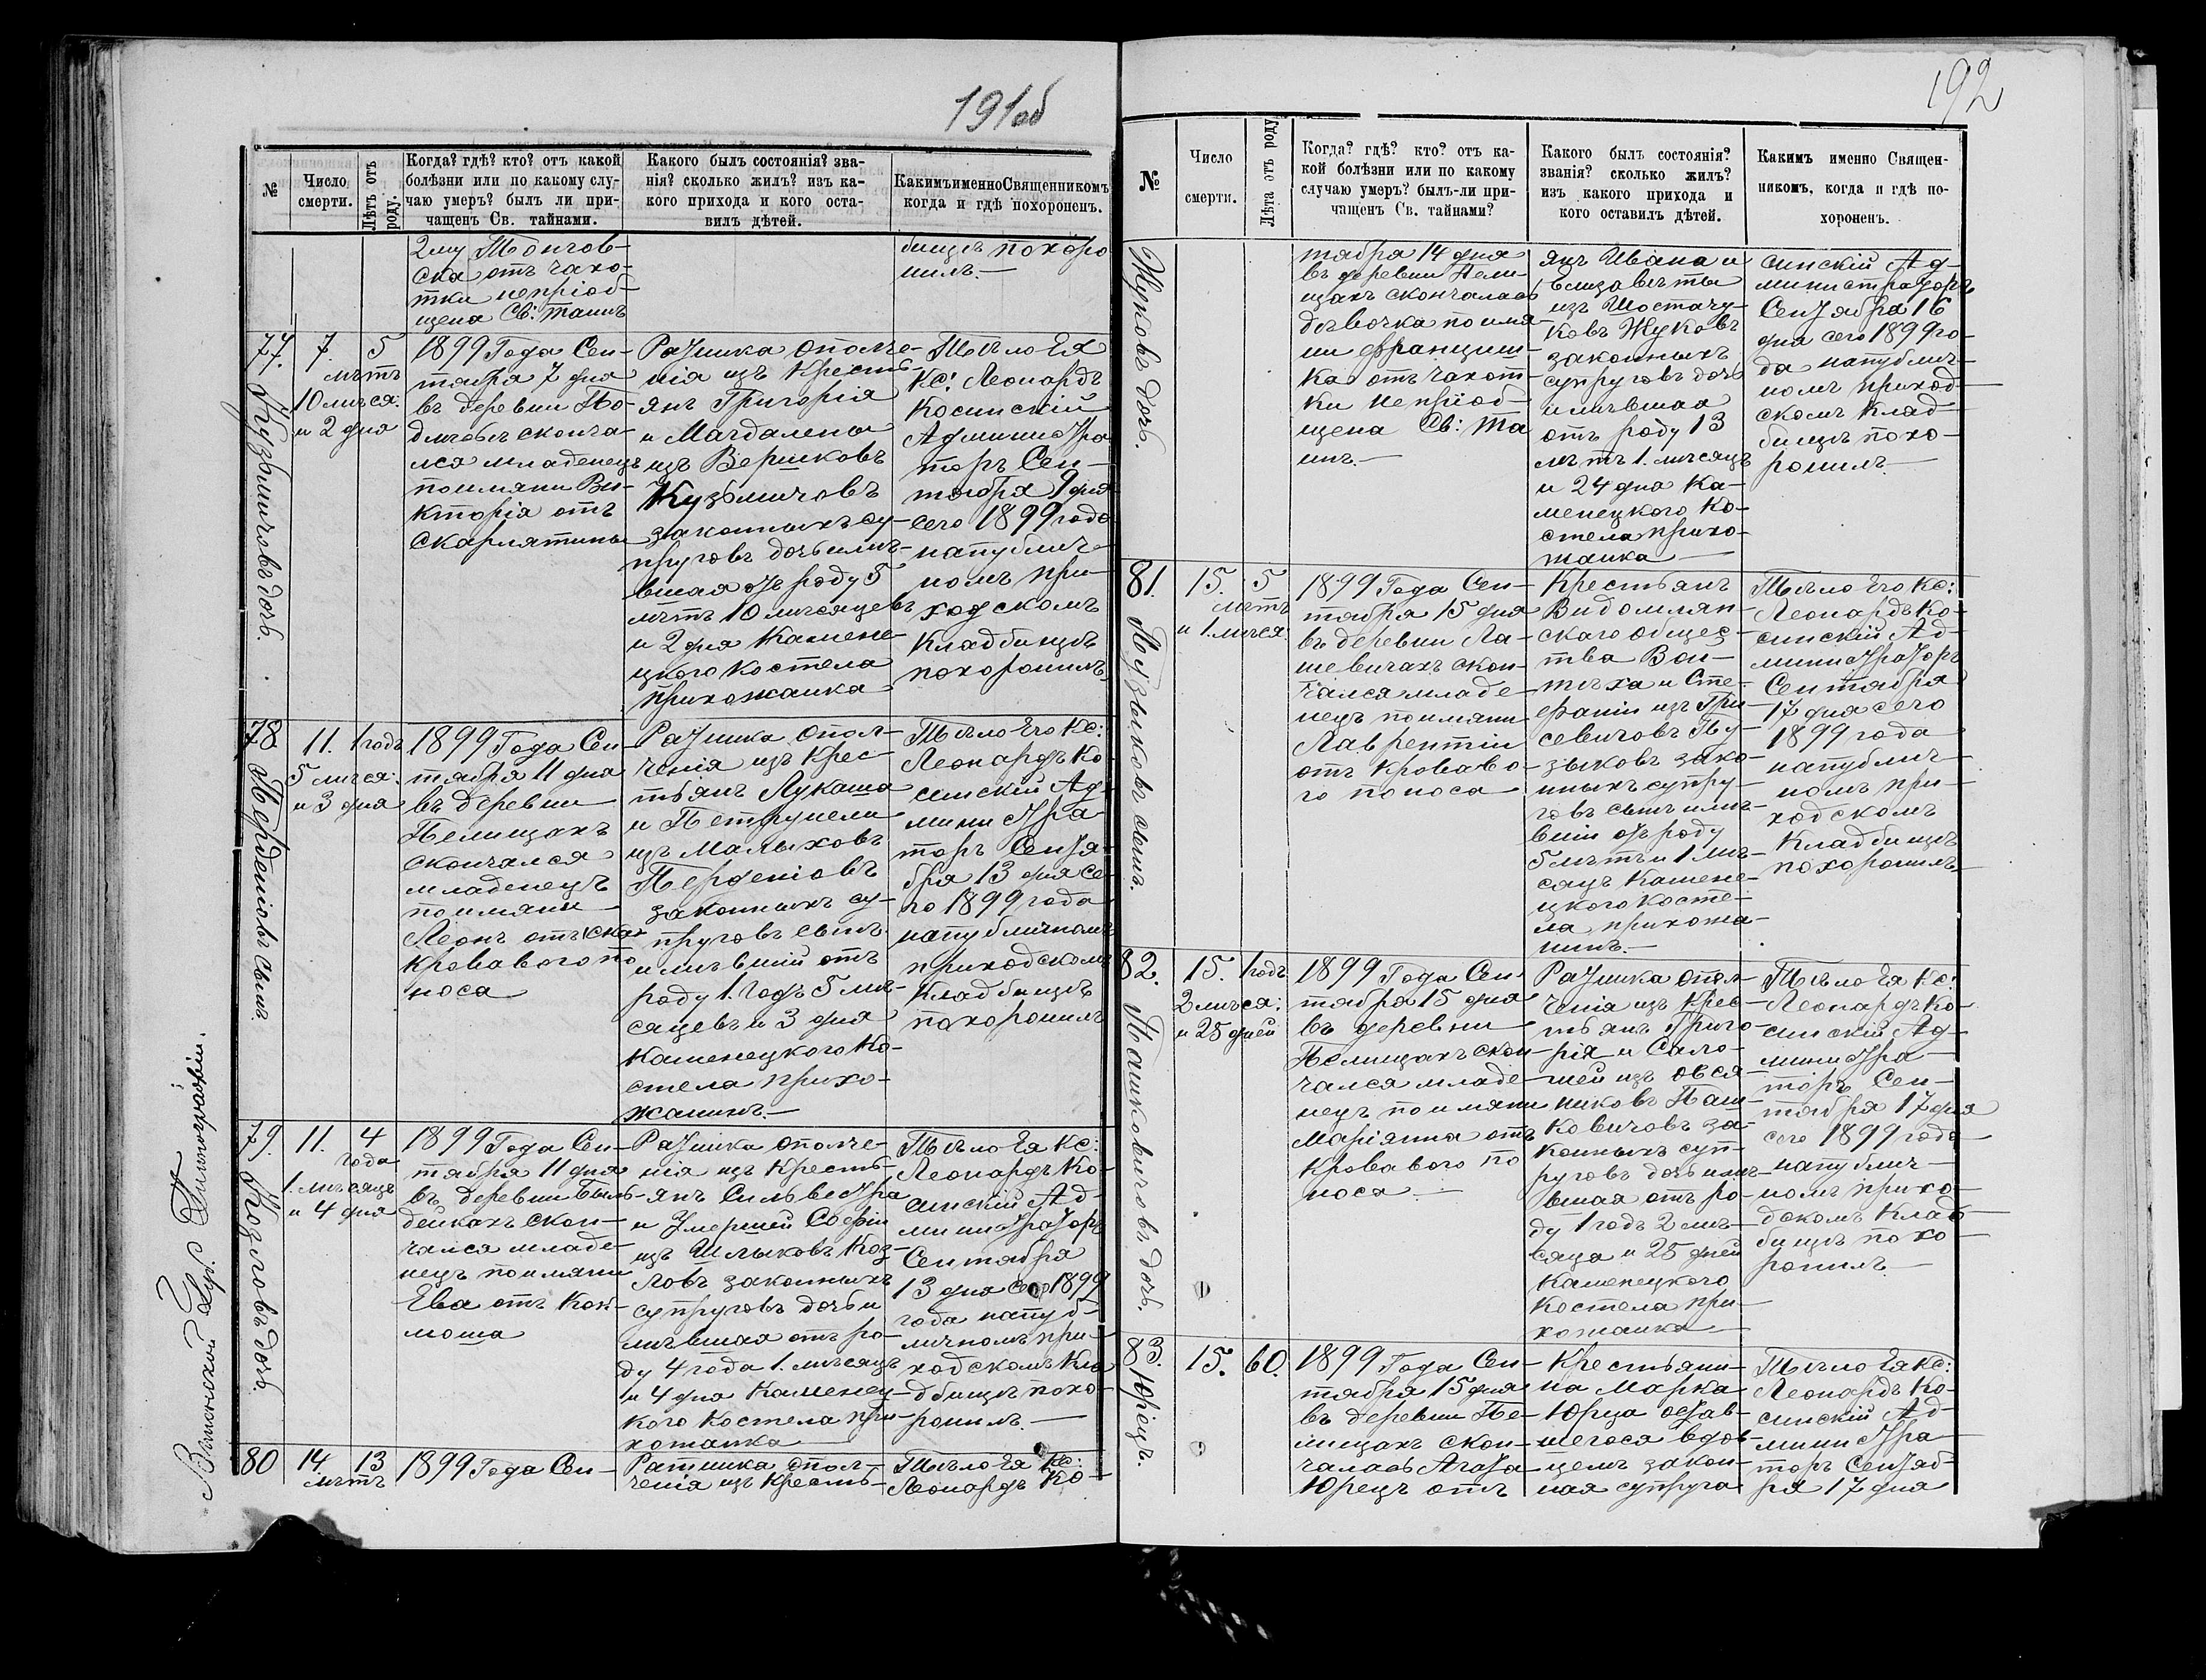 191об
№
Число смерти.
Лѣтъ отъ роду.
Когда? гдѣ? кто? отъ какой
болѣзни или по какому слу-
чаю умеръ? былъ ли при-
чащенъ Св. тайнами.
Какого былъ состоянія? зва-
нія? сколько жилъ? изъ ка-
кого прихода и кого оста-
вилъ дѣтей.
Какимъ именно Священникомъ
когда и гдѣ похороненъ.
скa отъ чахо-
тки непріоб-
щена Св: таинъ
бищѣ похоро
нилъ.—
77.
Кузьмичовъ дочь.
7.
5
лѣтъ
10 мѣся:
и 2 дня
1899 Года Сен-
тября 7 дня
въ деревни По-
сконча-
лся младенецъ
поимяни Ви-
кторія отъ
Скарлятины
Ратника ополче-
нія изъ Кресть-
янъ Григорія
и Магдалены
изъ Вершковъ
Кузьмичовъ
законныхъ су-
пруговъ дочь имѣ-
вшая отъ роду 5
лѣтъ 10 мѣсяцевъ
и 2 дня Камене-
цкого Костела
прихожанка
Тѣло Ея
Кс: Леонардъ
Косинскій
Администра
торъ Сен-
тября 9 дня
сего 1899 года
напублич-
номъ при-
ходскомъ
Кладбищѣ
похоронилъ
78.
Перденіовъ сынъ.
11.
1 годъ
5 мѣся:
и 3 дня
1899 Года Сен-
тября 11 дня
въ деревни
Пелищахъ
скончался
младенецъ
поимяни
Леонъ отъ
Кроваваго по
носа
Ратника опол-
ченія изъ Крес-
тьянъ Лукаша
и Петрунели
изъ Малыховъ
Перденіовъ
законныхъ су-
пруговъ сынъ
имѣвшій отъ
роду 1. Годъ 5 мѣ-
сяцевъ и 3 дня
Каменецкого Ко-
стела прихо-
жанинъ.—
Тѣло Его Кс:
Леонардъ Ко-
синскій Ад-
министра
торъ Сентя-
бря 13 дня се-
го 1899 года
напубличномъ
приходскомъ
Кладбищѣ
похоронилъ
79.
Козловъ дочь.
11.
4
года
1. мѣсяцъ
и 4 дня
1899 Года Сен-
тября 11 дня
въ деревни Быль-
дейкахъ скон-
чался младе-
нецъ поимяни
Ева отъ Кок-
люша
Ратника ополче-
нія изъ Кресть-
янъ Сильвестра
и Умершей Софіи
изъ Шлыковъ Коз-
ловъ законныхъ
супруговъ дочь и
мѣвшая отъ ро-
ду 4 года 1. мѣсяцъ
и 4 дня Каменец-
кого Костела при-
хожанка
Тѣло Ея Кс:
Леонардъ Ко-
синскій Ад-
министраторъ
Сентября
13 дня сего 1899
года напуб-
личномъ при-
ходскомъ Кла
дбищѣ похо-
ронилъ.—
80
14.
13
лѣтъ
1899 Года Сен-
Ратника опол-
ченія изъ Кресть-
Тѣло Ея Кс:
Леонардъ Ко-
192
№
Число
смерти.
Лѣта отъ роду
Когда? гдѣ? кто? отъ ка-
кой болѣзни или по какому
случаю умеръ? былъ-ли при-
чащенъ Св. тайнами?
Какого былъ состоянія?
званія? сколько жилъ?
изъ какого прихода и
кого оставилъ дѣтей.
Какимъ именно Священ-
никомъ, когда и гдѣ по-
хороненъ.
Жуковъ дочь.
тября 14 дня
въ деревни Пели-
щахъ скончалась
дѣвочка поимя-
ни Францишка
отъ чахот-
ки непріоб-
щена Св: Та
инъ.—
янъ Ивана и
Елизаветы
изъ Шостачу-
ковъ Жуковъ
законныхъ
супруговъ дочь
имѣвшая
отъ роду 13
лѣтъ 1. мѣсяцъ
и 24 дня Ка-
менецкого Ко-
стела прихо-
жанка
синскій Ад-
министраторъ
Сентября 16
дня сего 1899 го-
да напублич-
номъ приход-
скомъ Клад-
бищѣ похо-
ронилъ.—
81.
Пузыковъ сынъ.
15.
5
лѣтъ
и 1. мѣся.
1899 Года Сен-
тября 15 дня
въ деревни Ля-
шевичахъ скон-
чался младе-
нецъ поимяни
Лаврентій
отъ Кроваво-
го поноса
Крестьянъ
Видомлян-
скаго общес-
тва Вой-
тѣха и Сте-
фаніи изъ Гри-
севичовъ Пу-
зыковъ зако-
нныхъ супру-
говъ сынъ имѣ-
вшій отъ роду
5 лѣтъ и 1 мѣ-
сяцъ Камене-
цкого Косте-
ла прихожа-
нинъ.—
Тѣло Его Кс:
Леонардъ Ко-
синскій Ад-
министраторъ
Сентября
17 дня сего
1899 года
напублич-
номъ при-
ходскомъ
Кладбищѣ
похоронилъ
82.
Пашковичовъ дочь.
15.
1 годъ
2 мѣся:
и 25 дней
1899 Года Сен-
тября 15 дня
въ деревни
Пелищахъ скон-
чался младе-
нецъ поимяни
Маріянна отъ
Кроваваго по
носа.—
Ратника опол-
ченія изъ Крес-
тьянъ Григо-
рія и Сало-
меи изъ Овся-
никовъ Паш-
ковичовъ за-
конныхъ суп-
руговъ дочь имѣ-
вшая отъ ро-
ду 1 годъ 2 мѣ-
сяца и 25 дней
Каменецкого
Костела при-
хожанка
Тѣло Ея Кс:
Леонардъ Ко-
синскій Ад-
министра-
торъ Сен-
тября 17 дня
сего 1899 года
напублич-
номъ прихо-
дскомъ Клад-
бищѣ похо-
ронилъ.—
83.
Юрецъ.
15.
60.
1899 Года Сен-
тября 15 дня
въ деревни Пе-
лищахъ скон-
чалась Агата
Юрецъ отъ
Крестьяни-
на Марка
Юрца остав-
шегося вдов-
цемъ закон-
ная супруга
Тѣло Ея Кс:
Леонардъ Ко-
синскій Ад-
министра
торъ Сентяб-
ря 17 дня